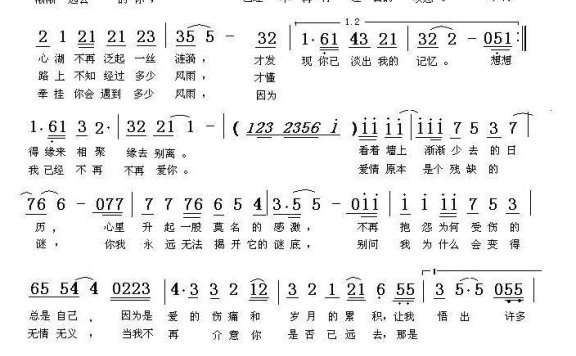 2 1 21 21 23 | 35 5 – 32 | 1·61 43 21 | 32 2 – 051 :|
1.2
心 湖 不再 泛起 一丝 涟漪， 才发 现 你已 淡出 我的 记忆 。 想想
路 上 不知 经过 多少 风雨， 才懂
牵 挂 你会 遇到 多少 风雨， 因为
1·61 3 2· | 32 21 1 – | ( 123 2356 i ) | ii ii | iii 7 5 3 7 |
得 缘来 相 聚 缘去 别离 。 看着 墙上 渐渐 少去 的 日
我 已经 不 再 不再 爱你 。 爱情 原本 是个 残缺 的
76 6 – 077 | 7 7 76 6 5 4 | 3·5 5 – 0ii | i i ii 7 5 3 |
历， 心里 升 起 一般 莫 名 的 感 激， 不再 抱 怨 为何 受 伤 的
谜， 你我 永 远 无法 揭 开 它的 谜 底， 别问 我 为 什么 会 变 得
65 54 4 0223 | 4·3 3 2 12 | 3 2 1 21 6 55 | 3 5·5 055 |
总是 自己 、 因为是 爱 的 伤 痛 和 岁 月 的 累 积，让我 悟 出 许多
无情 无义， 当我不 再 介 意 你 是 否 已 远 去，那是